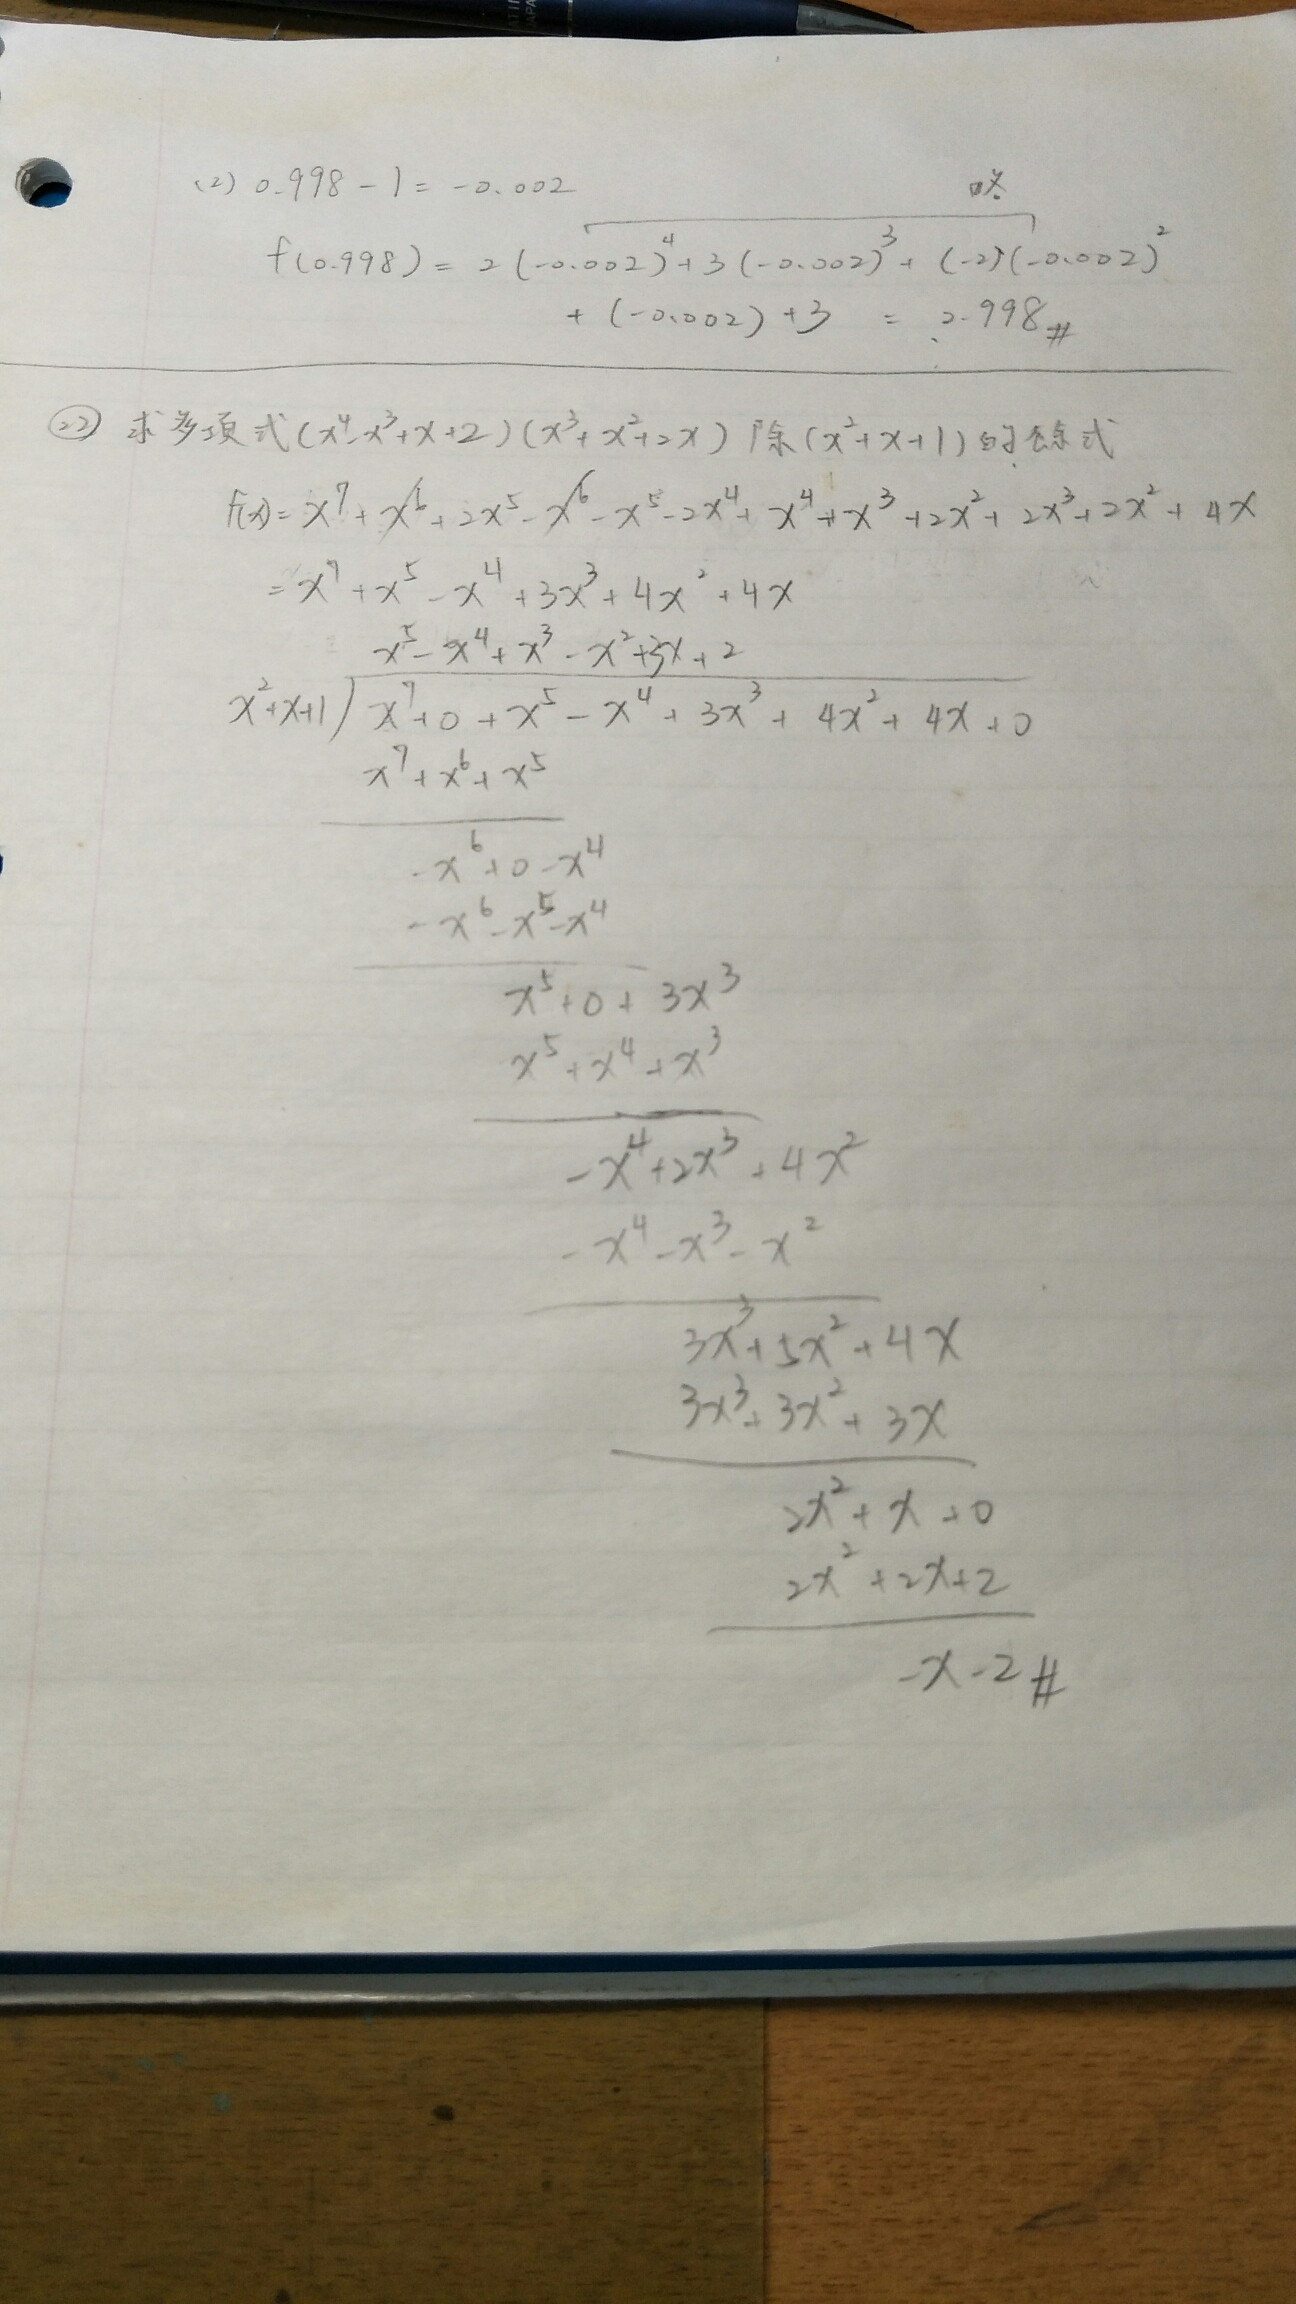 (2) 0.998 - 1 = -0.002
略
f(0.998) = 2(-0.002)⁴ + 3(-0.002)³ + (-2)(-0.002)²
+ (-0.002) + 3 = 2.998#
㉒ 求多項式(x⁴-x³+x+2)(x³+x²+2x)除(x²+x+1)的餘式
f(x) = x⁷ + x⁶ + 2x⁵ - x⁶ - x⁵ - 2x⁴ + x⁴ + x³ + 2x² + 2x³ + 2x² + 4x
= x⁷ + x⁵ - x⁴ + 3x³ + 4x² + 4x
x⁵ - x⁴ + x³ - x² + 3x + 2
x²+x+1 ) x⁷ + 0 + x⁵ - x⁴ + 3x³ + 4x² + 4x + 0
x⁷ + x⁶ + x⁵
-x⁶ + 0 - x⁴
-x⁶ - x⁵ - x⁴
x⁵ + 0 + 3x³
x⁵ + x⁴ + x³
-x⁴ + 2x³ + 4x²
-x⁴ - x³ - x²
3x³ + 5x² + 4x
3x³ + 3x² + 3x
2x² + x + 0
2x² + 2x + 2
-x - 2#